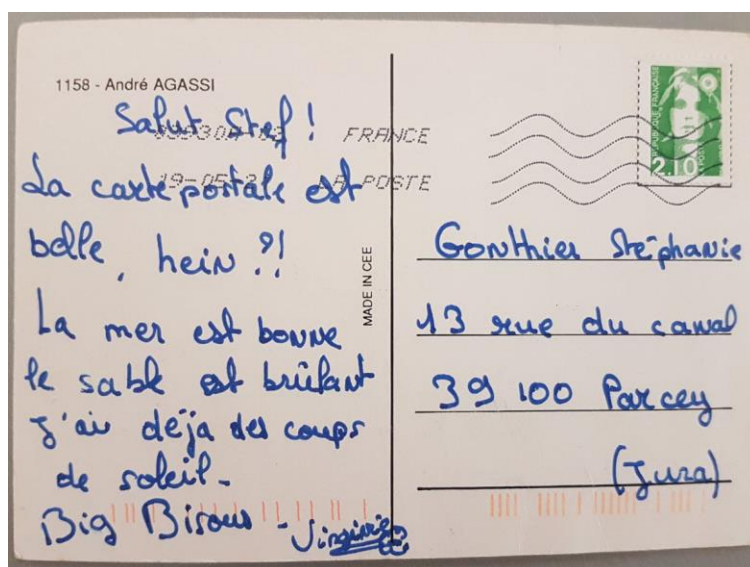 1158 - André AGASSI
Salut Stef !
FRANCE
La carte postale est
19-05
LA POSTE
belle, hein ?!
La mer est bonne
le sable est brûlant
J'ai déja des coups
de soleil.
Big Bisous - Virginie
MADE IN CEE
REPUBLIQUE FRANÇAISE
2,10
Gonthier Stéphanie
13 rue du canal
39 100 Parcey
(Jura)